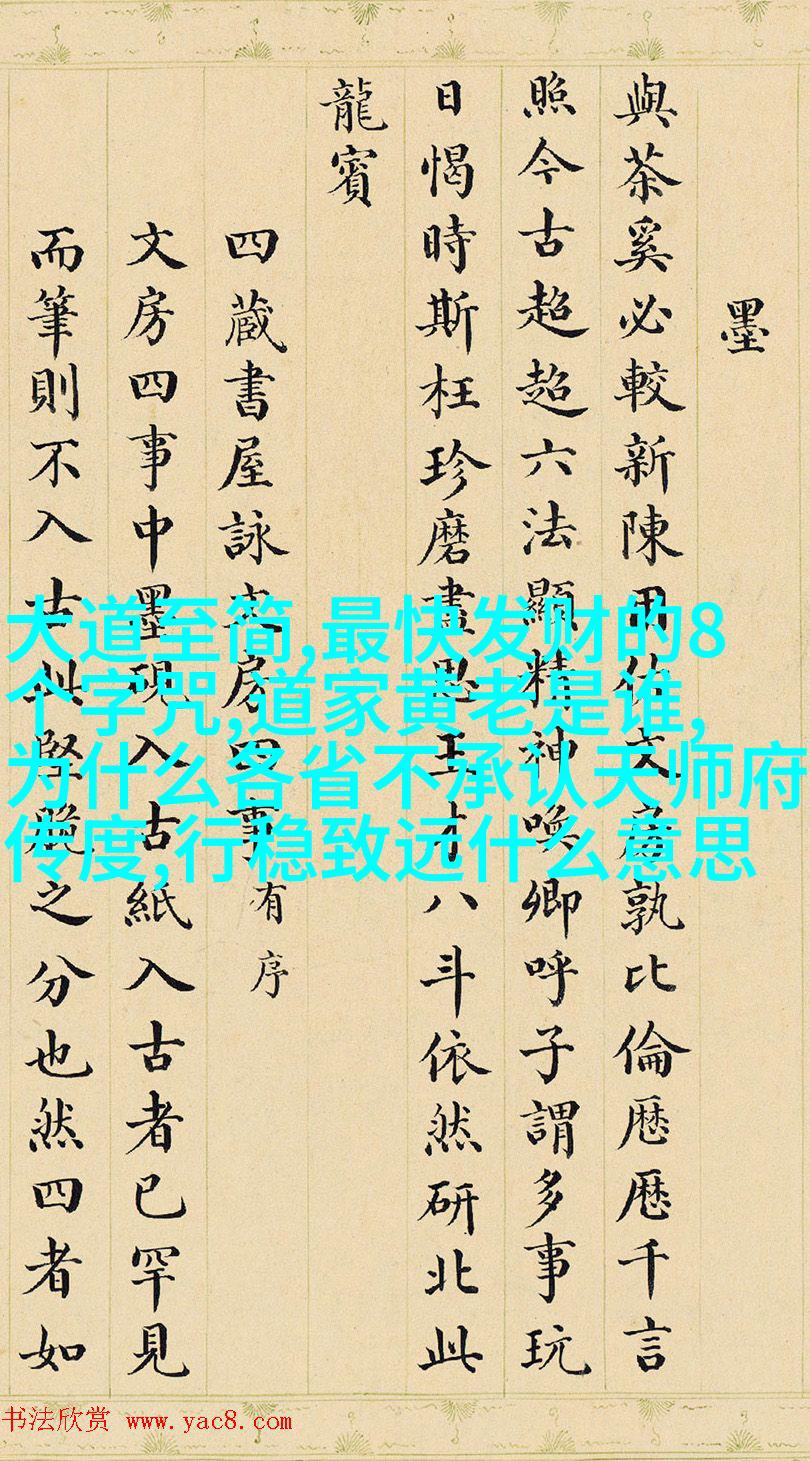 墨
與茶奚必較新陳用佐文房孰比倫厯厯千言
照今古超超六法顯精神喚卿呼子謂多事玩
日愒時斯枉珍磨盡思王才八斗依然研北此
龍賓
四蔵書屋詠文房四事有序
文房四事中墨硯入古紙入古者已罕見
而筆則不入古堅脆之分也然四者如
大道至简,最快发财的8
个字咒,道家黄老是谁,
为什么各省不承认天师府
传度,行稳致远什么意思
书法欣赏 www.yac8.com